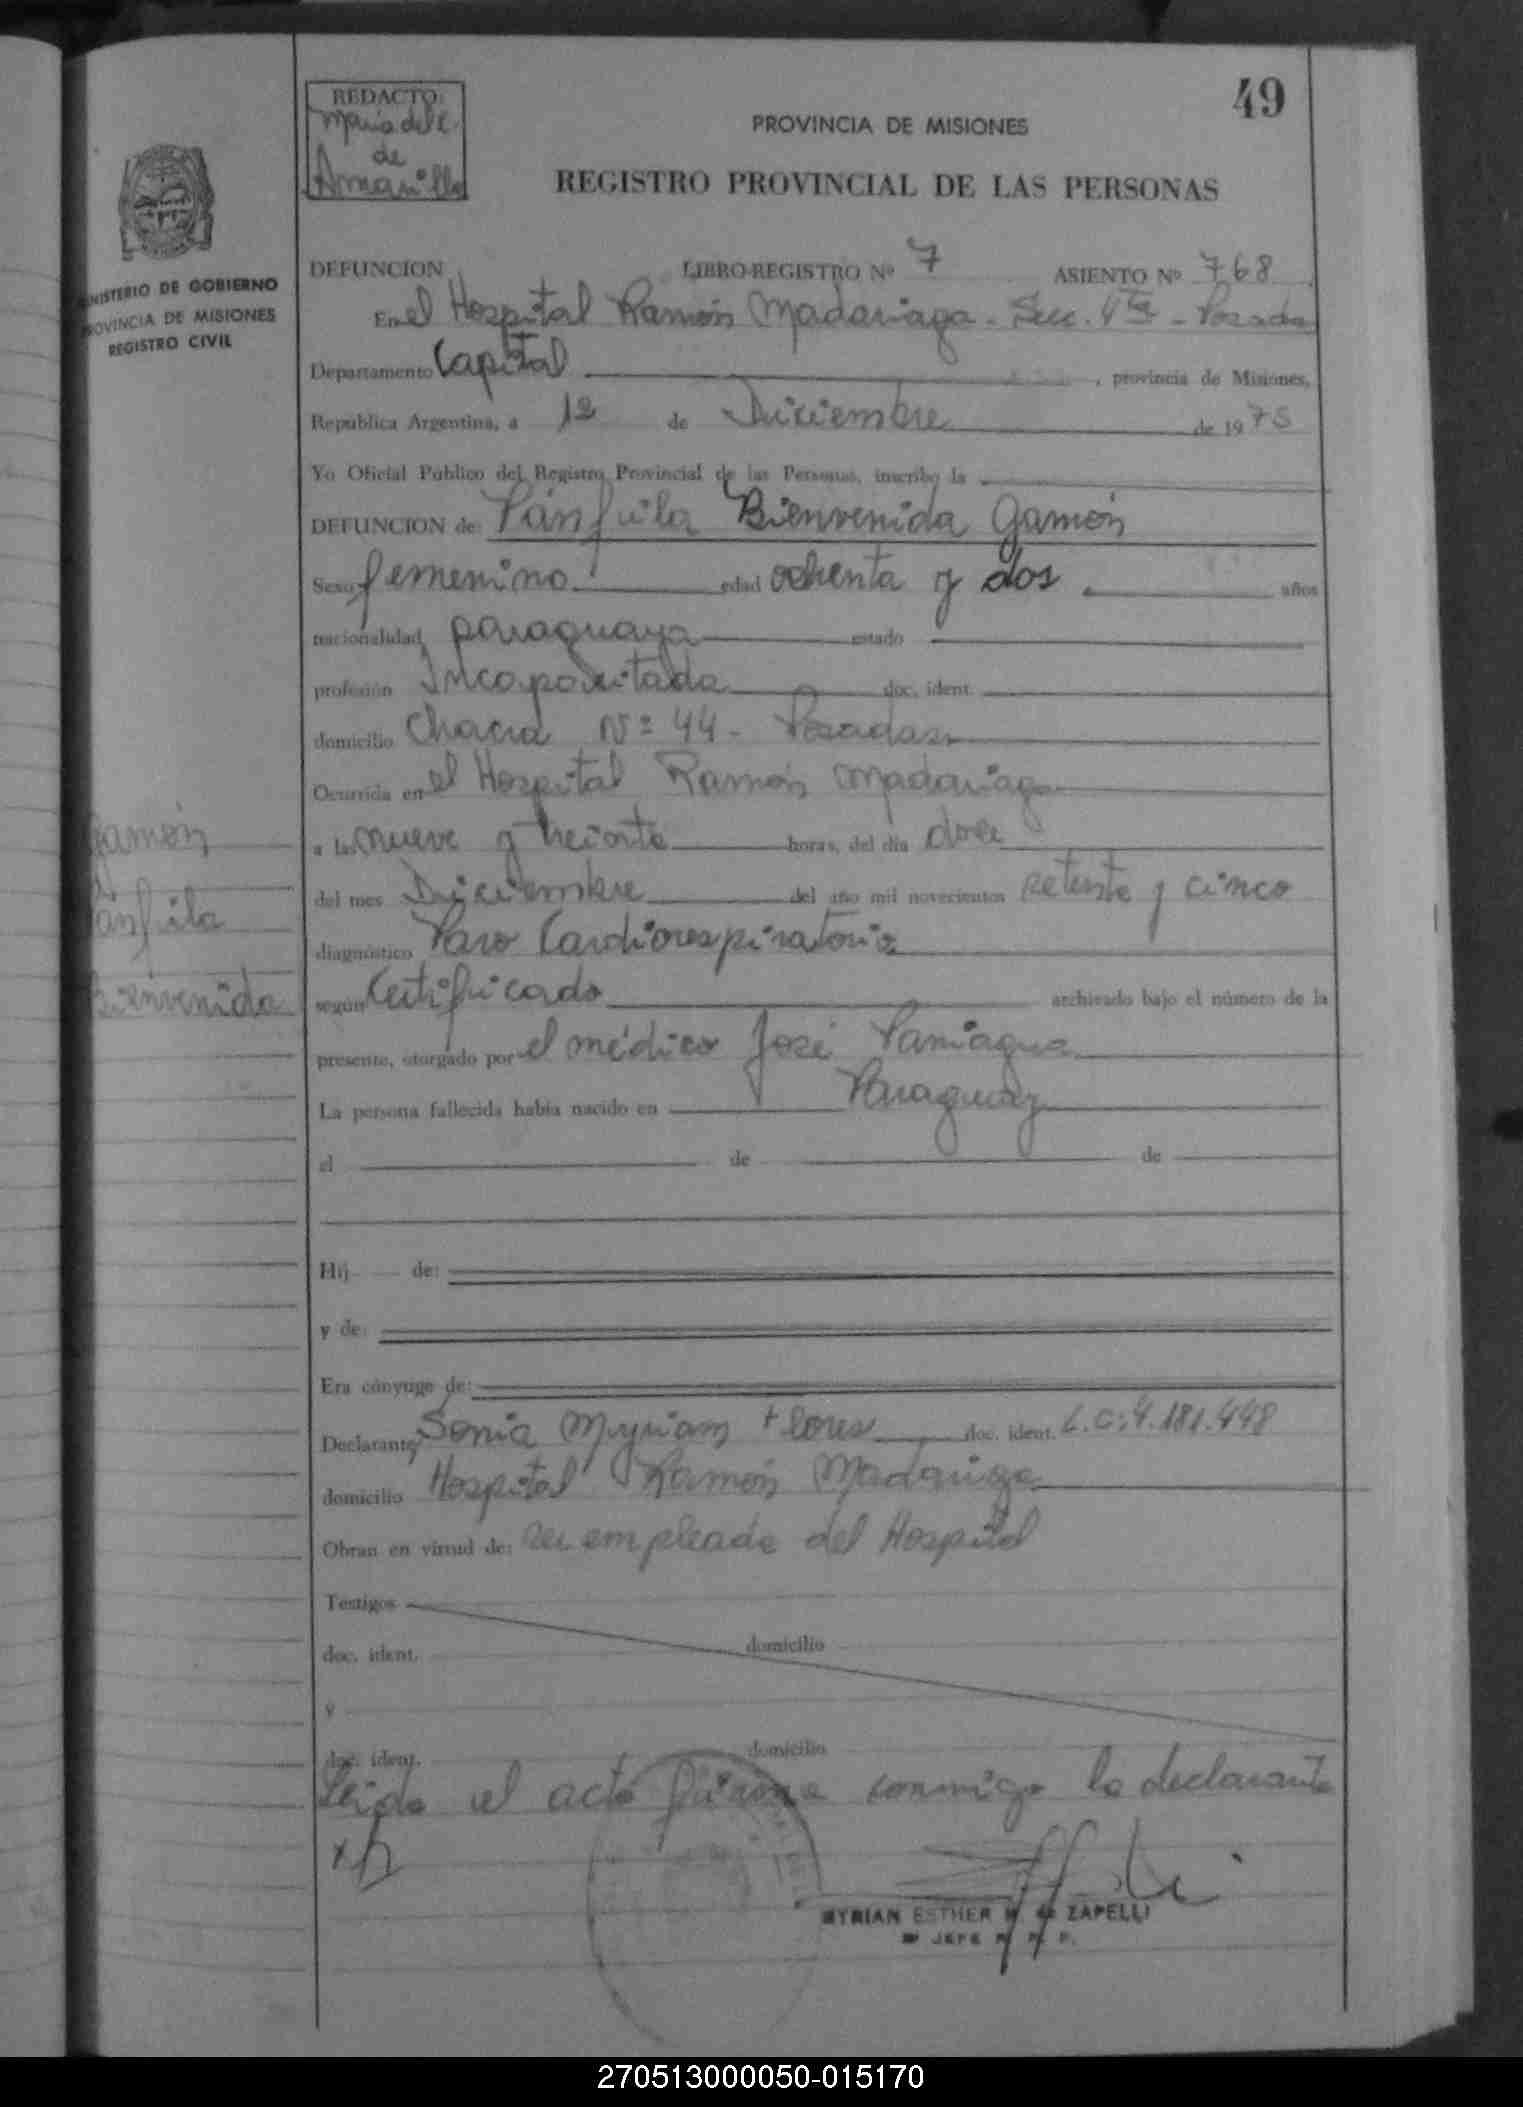 49
REDACTO:
Maria del C.
de
Amarilla
PROVINCIA DE MISIONES
REGISTRO PROVINCIAL DE LAS PERSONAS
MINISTERIO DE GOBIERNO
PROVINCIA DE MISIONES
REGISTRO CIVIL
DEFUNCION LIBRO-REGISTRO Nº 7 ASIENTO Nº 768
En el Hospital Ramón Madariaga - Secc. 4ta - Posadas
Departamento Capital , provincia de Misiones,
República Argentina, a 12 de Diciembre de 1975
Yo Oficial Público del Registro Provincial de las Personas, inscribo la
DEFUNCION de: Pánfila Bienvenida Gamón
Sexo femenino edad ochenta y dos años
nacionalidad paraguaya estado
profesión Incapacitada doc. ident.
domicilio Chacra Nº 44 - Posadas
Ocurrida en el Hospital Ramón Madariaga
a las nueve y treinta horas, del día doce
del mes Diciembre del año mil novecientos setenta y cinco
diagnóstico Paro Cardiorespiratorio
según Certificado archivado bajo el número de la
presente, otorgado por el médico José Paniagua
La persona fallecida había nacido en Paraguay
el de de
Hij de:
y de:
Era cónyuge de:
Declarante Sonia Myriam Flores doc. ident. L.C: 4.181.448
domicilio Hospital Ramón Madariaga
Obran en virtud de: ser empleada del Hospital
Testigos
doc. ident. domicilio
y
doc. ident. domicilio
Leida el acta firma conmigo la declarante
Gamón
Pánfila
Bienvenida
MYRIAN ESTHER M. de ZAPELLI
JEFE R. P. P.
270513000050-015170